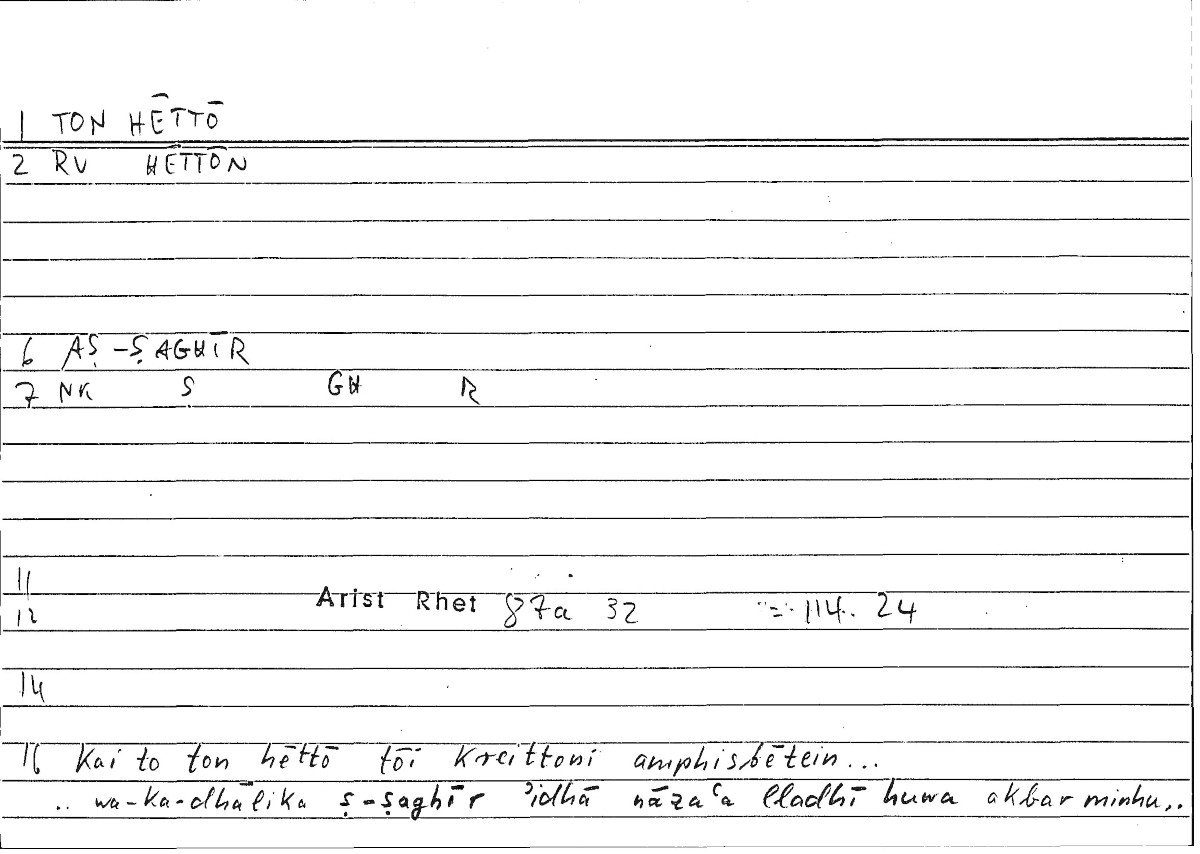 1 TON HĒTTŌ
2 RV HĒTTŌN
6 AṢ-ṢAGHĪR
7 NK Ṣ GH R
11
12 Arist Rhet 87a 32 = 114. 24
14
16 Kai to ton hēttō tōi kreittoni amphisbētein...
.. wa-ka-dhālika ṣ-ṣaghīr ʾidhā nāzaʿa lladhī huwa akbar minhu..